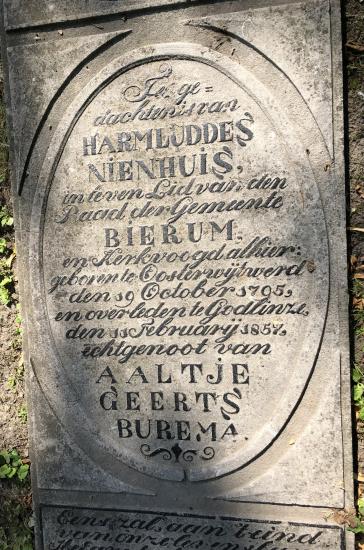 Te ge=
dachtenis van
HARM LUDDES
NIENHUIS,
in leven Lid van den
Raad der Gemeente
BIERUM,
en Kerkvoogd alhier:
geboren te Oosterwijtwerd
den 19 October 1795,
en overleden te Godlinze,
den 11 Februarij 1857,
echtgenoot van
AALTJE
GEERTS
BUREMA.
Eens zal aan 't eind
van onze